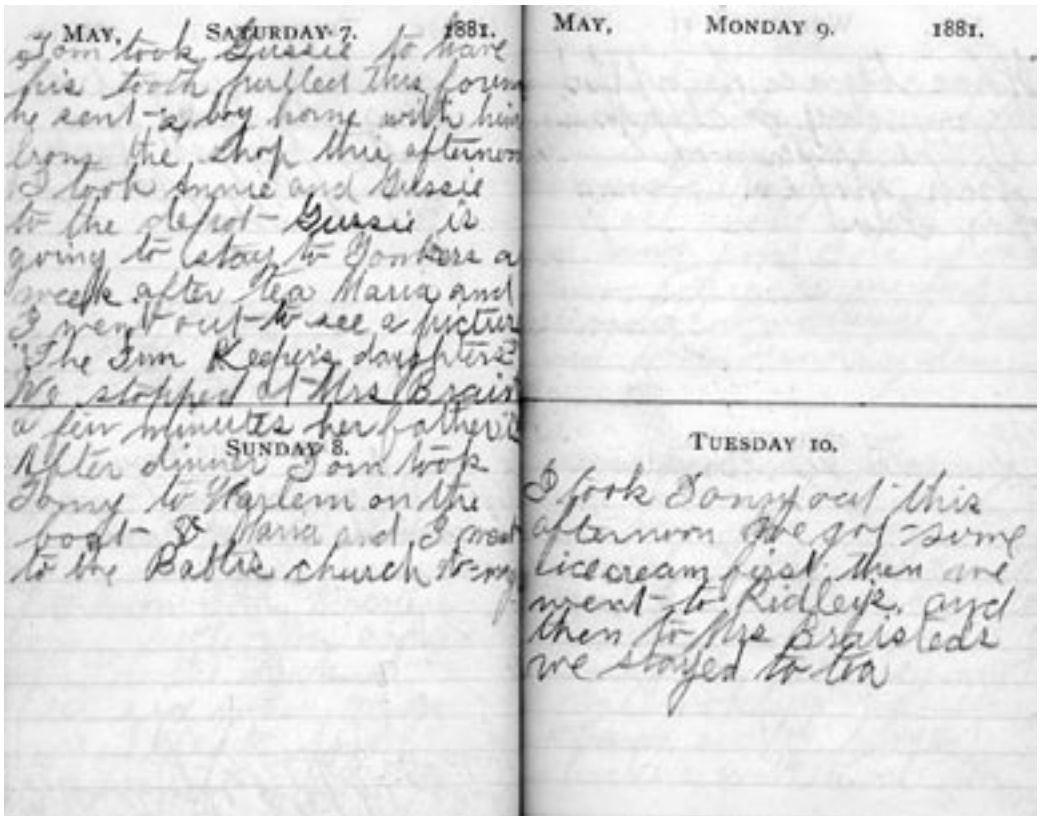 MAY, SATURDAY 7. 1881.
Tom took Gussie to have
his tooth pulled this foren
he sent a boy home with him
from the shop this afternoon
I took Annie and Gussie
to the depot Gussie is
going to stay to Yonkers a
week after tea Maria and
I went out to see a pictur
"The Inn Keepers daughters"
We stopped at Mrs Brais
a few minutes her father is
SUNDAY 8.
After dinner Tom took
Tomy to Harlem on the
boat & Maria and I went
to the church
MAY, MONDAY 9. 1881.
TUESDAY 10.
I took Tomy out this
afternoon we got some
icecream first then we
went to Ridleys and
then to Mrs Braisteds
we stayed to tea